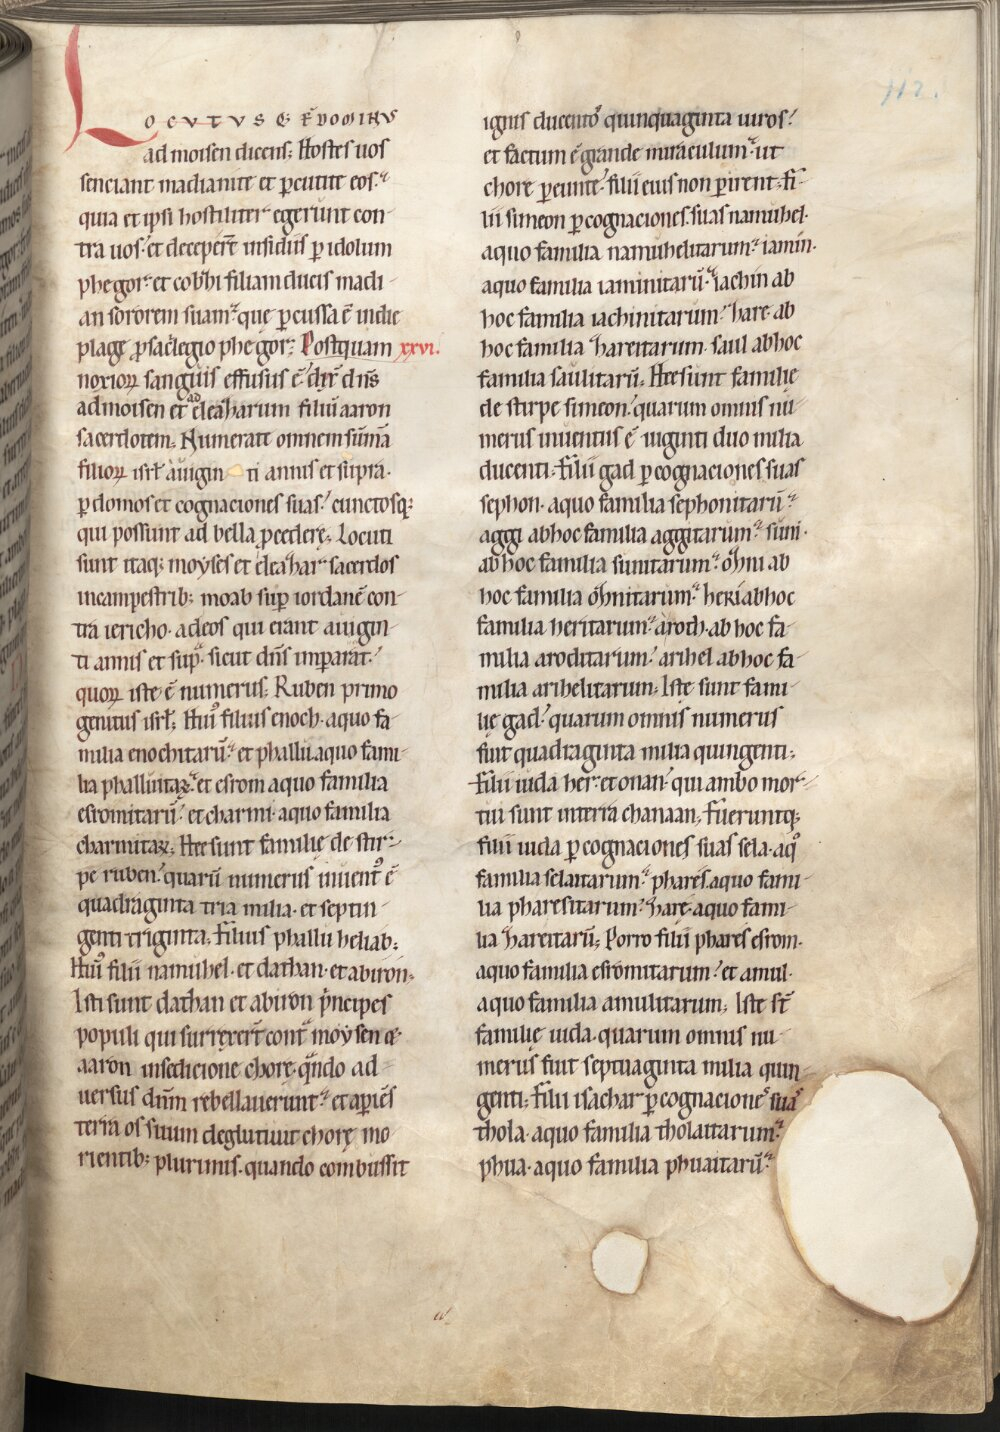 LOCUTUSQ; ÷ DOMINUS
ad moisen dicens; Hostes uos
senciant madianite et ꝑcutite eos.
quia et ipsi hostiliter egerunt con-
tra uos. et deceper̄t insidiis ꝑ idolum
phegor. et cobbi filiam ducis madi-
an sororem suam. que ꝑcussa ē in die
plage ꝓ sac̾legio phegor; Postquam xxvi.
noxioꝝ sanguis effusus ē dix̄ dn̄s
ad moisen et ad eleaharum filiū aaron
sacerdotem; Numerate omnem sūmā
filioꝝ isrł a uigin ti annis et supra.
ꝑ domos et cognaciones suas. cunctosq;
qui possunt ad bella ꝓcedere; Locuti
sunt itaq; moyses et eleahar sacerdos
in campestrib; moab suꝑ iordanē con-
tra iericho. ad eos qui erant a uigin-
ti annis et sup̾. sicut dn̄s imꝑarat.
quoꝝ iste ē numerus; Ruben primo
genitus isrł; Hui᾽ filius enoch. a quo fa-
milia enochitarū. et phallu. a quo fami-
lia phalluitaꝝ. et esrom a quo familia
esromitarū. et charmi. a quo familia
charmitaꝝ; Hee sunt familię de stir-
pe ruben. quarū numerus inuent᾽ ē
quadraginta tria milia. et septin-
genti triginta; Filius phallu heliab;
Hui᾽ filii namuhel. et dathan. et abiron;
Isti sunt dathan et abiron p̾ncipes
populi qui surrexer̄t cont̾ moysen &
aaron in sedicione chorę. qn̾do ad-
uersus dn̄m rebellauerunt. et apiēs
terra os suum deglutiuit chorę mo-
rientib; plurimis. quando combussit
ignis ducento᾽ quinquaginta uiros.
et factum ē grande miraculum. ut
chore ꝑeunte. filii eius non ꝑirent; Fi-
lii simeon ꝑ cognaciones. suas namuhel.
a quo familia namuhelitarum. iamin.
a quo familia iaminitarū. iachin ab
hoc familia iachinitarum. hare. ab
hoc familia hareitarum. saul ab hoc
familia saulitarū; Hee sunt familię
de stirpe simeon. quarum omnis nu-
merus inuentus ē uiginti duo milia
ducenti. Filii gad ꝑ cognaciones suas
sephon. a quo familia sephonitarū.
aggi ab hoc familia aggitarum. suni.
ab hoc familia sunitarum. ohni ab
hoc familia ohnitarum. heri ab hoc
familia heritarum. aroth. ab hoc fa-
milia aroditarum. arihel ab hoc fa-
milia arihelitarum; Iste sunt fami-
lię gad. quarum omnis numerus
fuit quadraginta milia quingenti;
Filii iuda her. et onan. qui ambo mor-
tui sunt in terra chanaan; Fueruntq;
filii iuda ꝑ cognaciones suas sela. a q᾽
familia selaitarum. phares. a quo fami-
lia pharesitarum. hare. a quo fami-
lia hareitarū; Porro filii phares esrom.
a quo familia esromitarum. et amul.
a quo familia amulitarum; Iste sт̄
familię iuda. quarum omnis nu-
merus fuit septuaginta milia quin-
genti; Filii isachar ꝑ cognacione᾽ sua᾽
thola. a quo familia tholaitarum.
phua. a quo familia phuaitarū.
112.